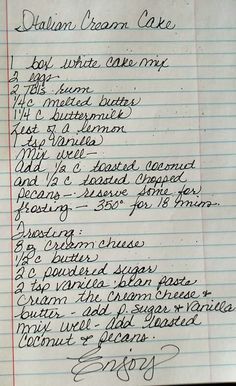 Italian Cream Cake
1 box white cake mix
2 eggs
2 TBLS rum
1/4 c melted butter
1 1/4 c buttermilk
Zest of a lemon
1 tsp Vanilla
Mix well —
Add 1/2 c toasted coconut
and 1/2 c toasted chopped
pecans — reserve some for
frosting — 350° for 18 mins.
Frosting:
8 oz Cream cheese
1/2 c butter
2 c powdered sugar
2 tsp vanilla bean paste
Cream the cream cheese &
butter - add p. sugar & Vanilla
mix well - add toasted
coconut & pecans.
Enjoy